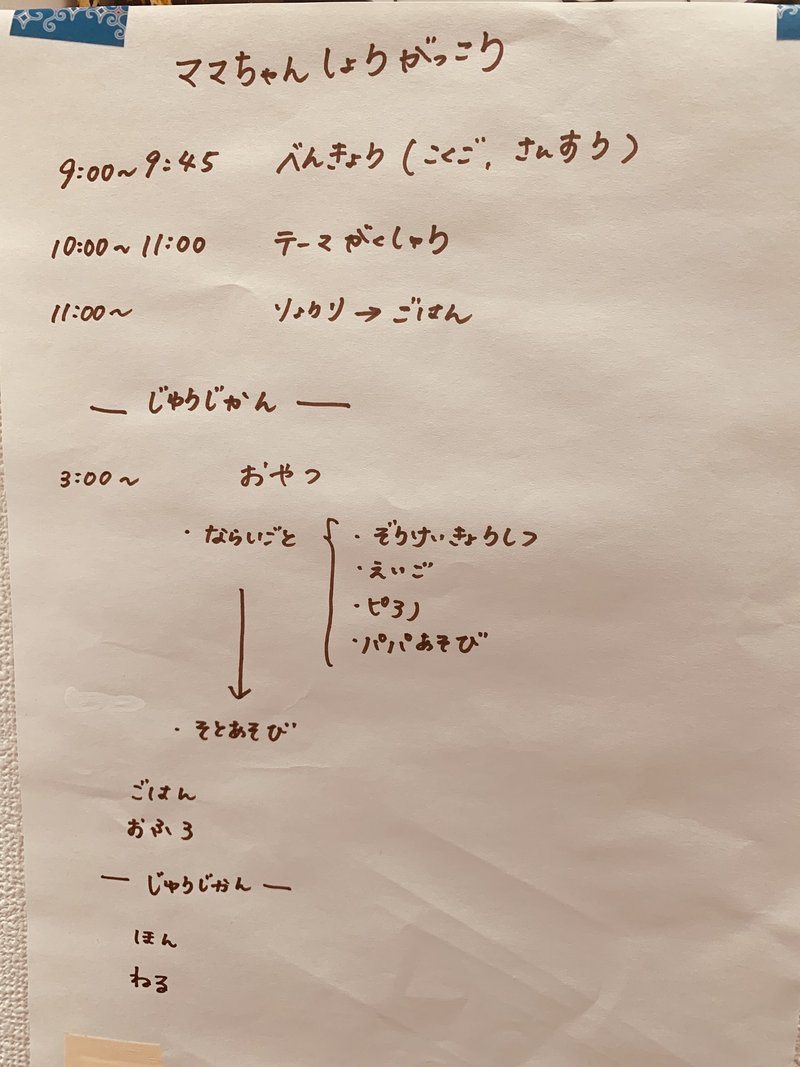 ママちゃんしょうがっこう
9:00~9:45 べんきょう(こくご,さんすう)
10:00~11:00 テーマがくしゅう
11:00~ りょうり→ごはん
— じゆうじかん —
3:00~ おやつ
・ならいごと{・ぞうけいきょうしつ
・えいご
・ピアノ
・パパあそび
↓
・そとあそび
ごはん
おふろ
— じゆうじかん —
ほん
ねる